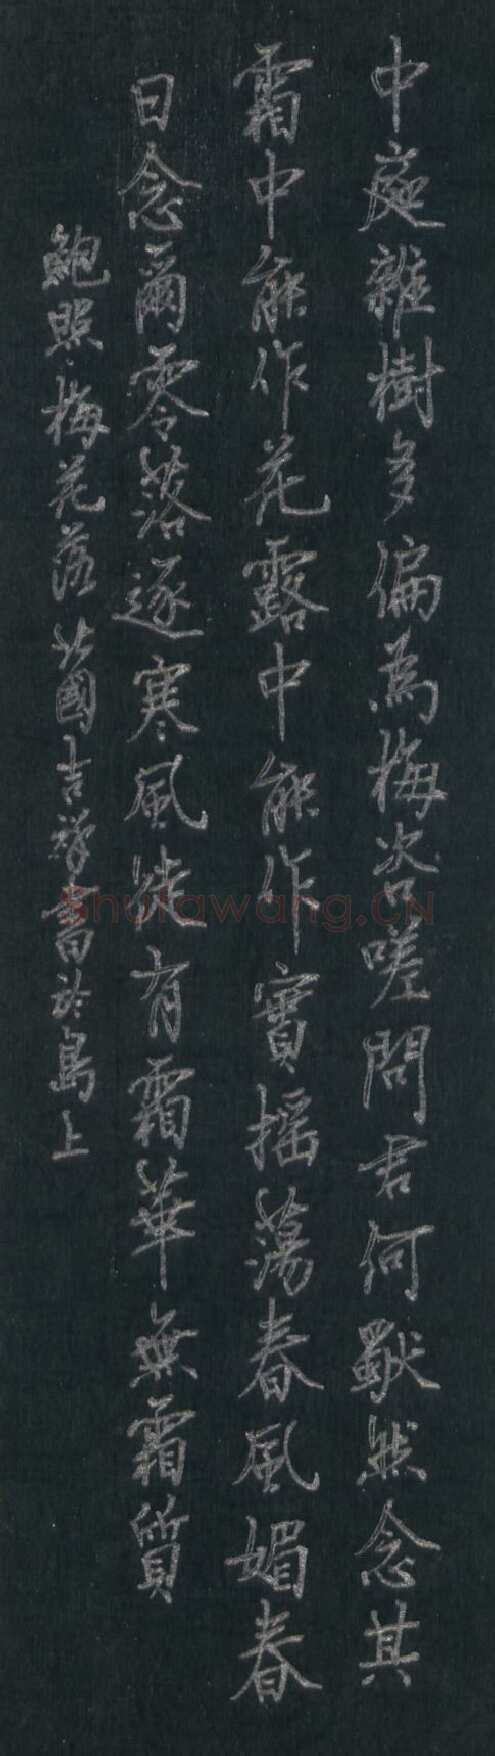 中庭雜樹多偏為梅咨嗟問君何獨然念其
霜中能作花露中能作實搖蕩春風媚春
日念爾零落逐寒風徒有霜華無霜質
鮑照梅花落 國吉 於島上
Shufawang.CN